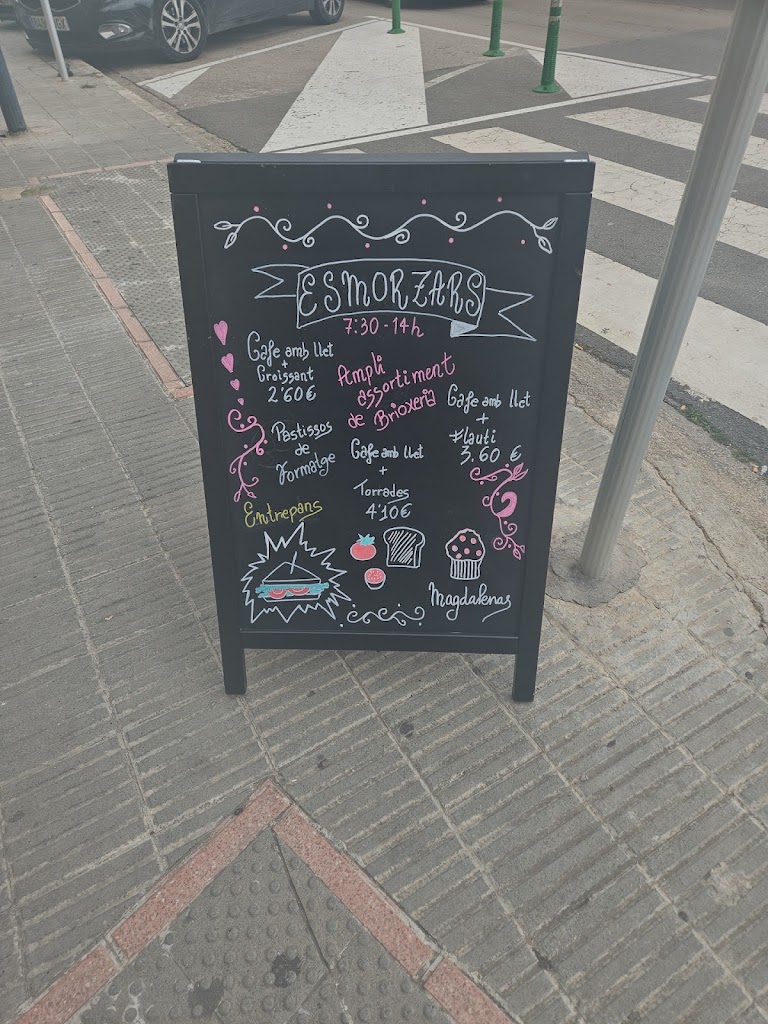 ESMORZARS
7:30-14h
Cafe amb llet
+
Croissant
2'60€
Ampli
assortiment
de Brioxeria
Cafe amb llet
+
flauti
3.60 €
Pastissos
de
Formatge
Cafe amb llet
+
Torrades
4'10€
Entrepans
Magdalenas